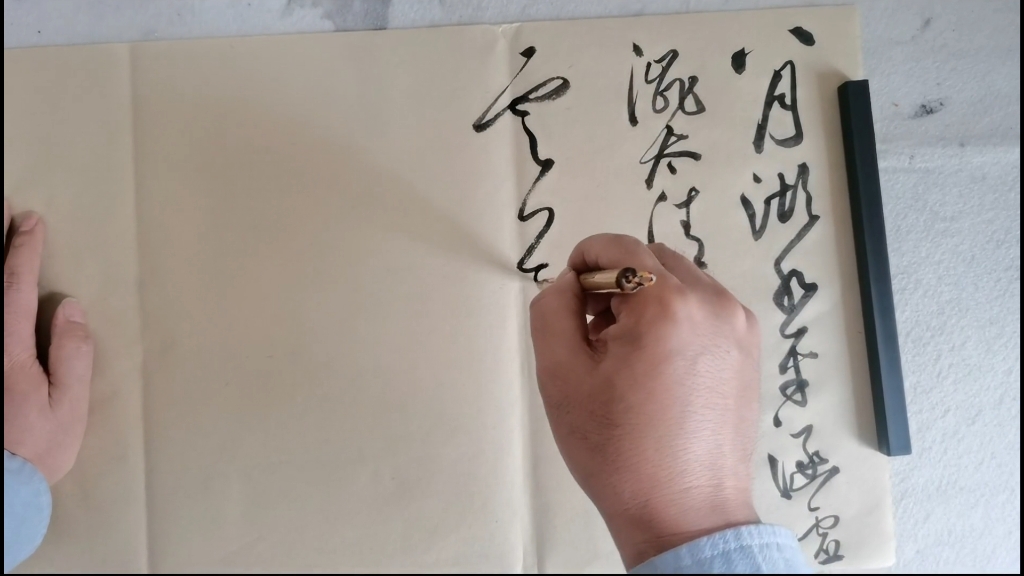 八月湖水平涵虚
混太清